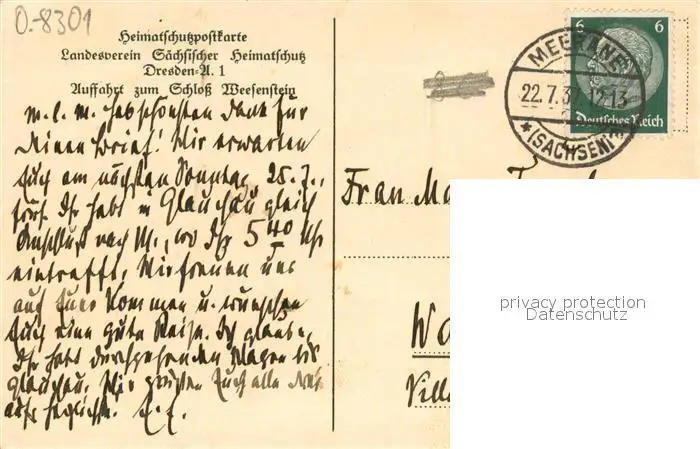 O-8301
Heimatschutzpostkarte
Landesverein Sächsischer Heimatschutz
Dresden-A. 1
Auffahrt zum Schloß Weesenstein
M. l. M. Hab schönsten Dank für
Deinen Brief! Wir erwarten
Euch am nächsten Sonntag, 25.7.,
Ihr habt in Glauchau gleich
Anschluß nach M., wo Ihr 5 40 Uhr
eintrefft. Wir freuen uns
auf Euer Kommen u. wünschen
Euch eine gute Reise. Ich glaube,
Ihr habt durchgehenden Wagen bis
Glauchau. Wir grüßen Euch alle
6 6
Deutsches Reich
MEERANE
22.7.37.12-13
(SACHSEN)
Frau
privacy protection
Datenschutz